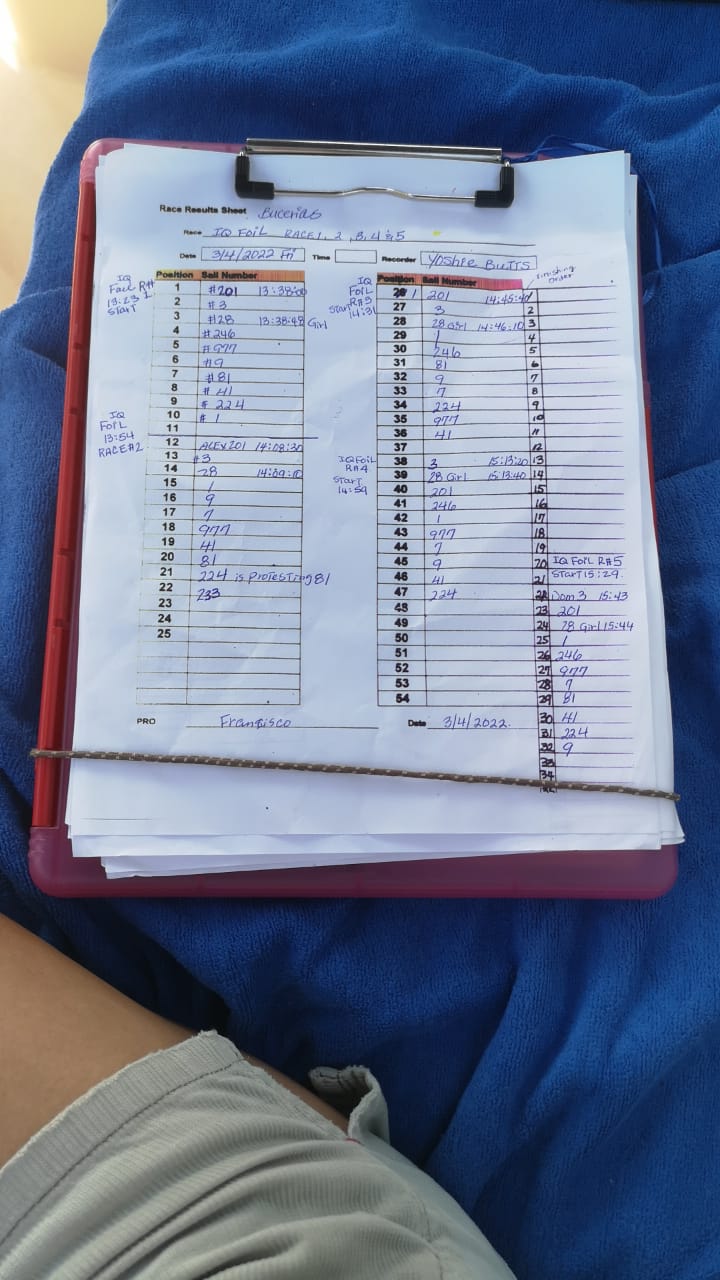 Race Results Sheet Bucerias
Race IQ FOIL RACE 1, 2, 3, 4 & 5
Date 3/4/2022 Fri Time Recorder YOSHIE BUTTS
IQ
Foil R#1
13:23
START
Position Sail Number
1 #201 13:38:00
2 #3
3 #28 13:38:48 Girl
4 #246
5 #977
6 #9
7 #81
8 #41
9 #224
10 #1
11
IQ
FOIL
13:54
RACE#2
12 ALEX 201 14:08:30
13 #3
14 28 14:09:10
15 1
16 9
17 7
18 977
19 41
20 81
21 224 is Protesting 81
22 233
23
24
25
IQ
FOIL
R#3
Start
14:31
Position Sail Number
26 1 201 14:45:40
27 3
28 28 Girl 14:46:10
29 1
30 246
31 81
32 9
33 7
34 224
35 977
36 41
37
IQ FOIL
R#4
START
14:59
38 3 15:13:20
39 28 Girl 15:13:40
40 201
41 246
42 1
43 977
44 7
45 9
46 41
47 224
48
49
50
51
52
53
54
Finishing
order
1
2
3
4
5
6
7
8
9
10
11
12
13
14
15
16
17
18
19
20 IQ FOIL R#5
21 START 15:29.
22 Dom 3 15:43
23 201
24 28 Girl 15:44
25 1
26 246
27 977
28 7
29 81
30 41
31 224
32 9
33
34
PRO Francisco Date 3/4/2022.